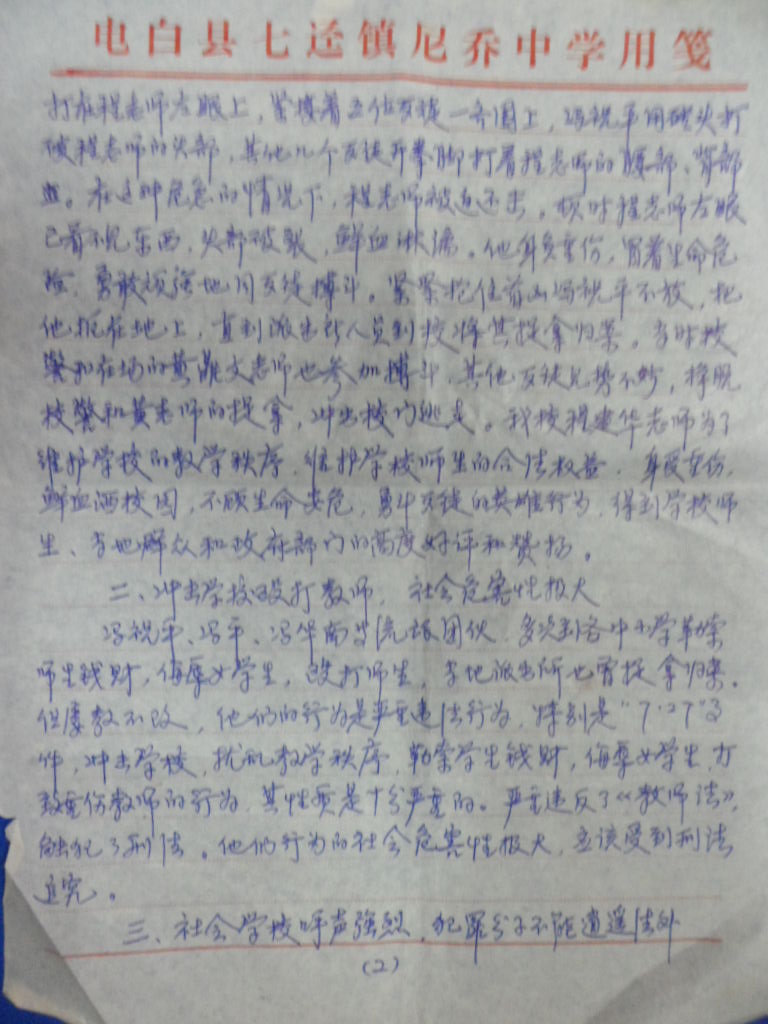 电白县七迳镇尼乔中学用笺
打在程老师左眼上,紧接着五位歹徒一齐围上,冯祝平用砖头打
破程老师的头部,其他几个歹徒开拳脚打着程老师的腰部、背部
在这种危急的情况下,程老师被迫还击。顿时程老师左眼
已看不见东西,头部破裂,鲜血淋漓。他身负重伤,冒着生命危
险,勇敢顽强地同歹徒搏斗。紧紧抱住冯祝平不放,把
他扼在地上,直到派出所人员到校将其捉拿归案。当时校
警和在场的黄鼎文老师也参加搏斗,其他歹徒见势不妙,挣脱
校警和黄老师的捉拿,冲出校门逃走。我校程建华老师为了
维护学校的教学秩序,维护学校师生的合法权益,身受重伤,
鲜血洒校园,不顾生命安危,勇斗歹徒的英雄行为,得到学校师
生、当地群众和政府部门的高度好评和赞扬。
二、冲击学校殴打教师,社会危害性极大
冯祝平、冯平、冯华南等流氓团伙,多次到各中小学勒索
师生钱财,侮辱女学生,殴打师生,当地派出所也曾捉拿归案,
但屡教不改,他们的行为是严重违法行为,特别是"7·27"事
件,冲击学校,扰乱教学秩序,勒索学生钱财,侮辱女学生,打
致重伤教师的行为,其性质是十分严重的。严重违反了《教师法》,
触犯了刑法。他们行为的社会危害性极大,应该受到刑法
追究。
三、社会学校呼声强烈,犯罪分子不能逍遥法外
(2)